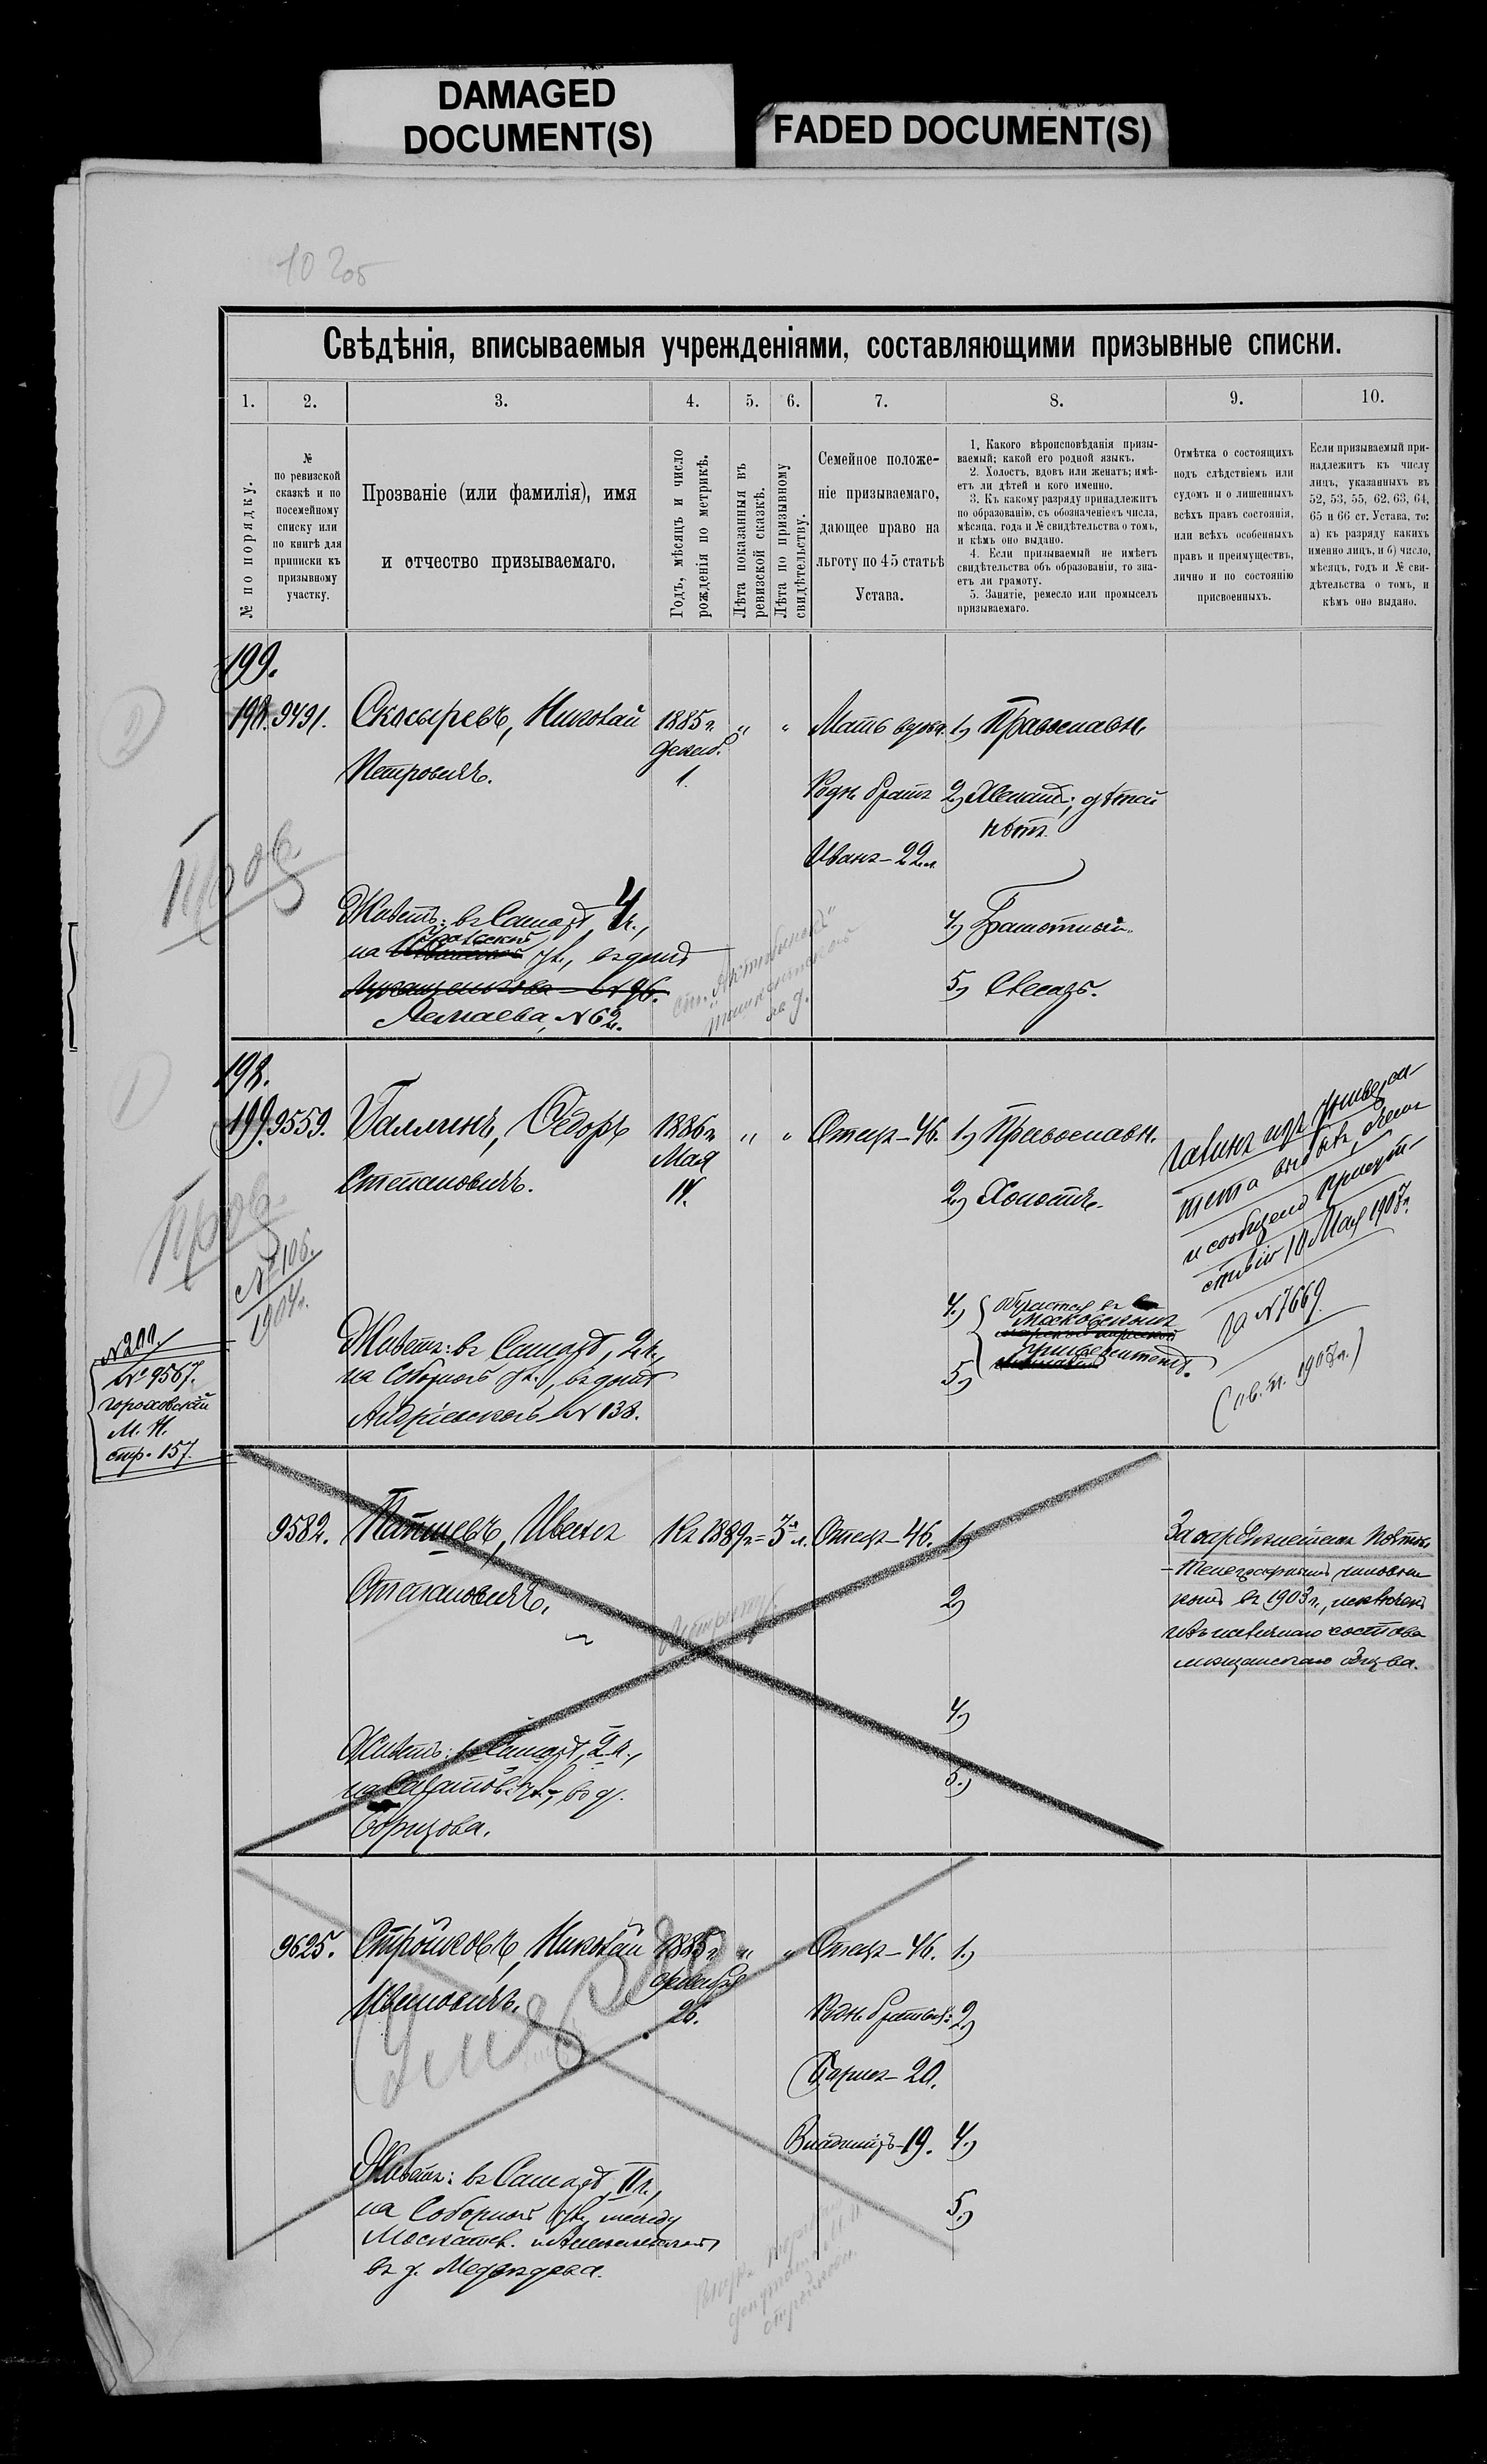 DAMAGED
DOCUMENT(S)
FADED DOCUMENT(S)
10 205
Свѣдѣнія, вписываемыя учрежденіями, составляющими призывные списки.
1.
2.
3.
4.
5.
6.
7.
8.
9.
10.
№ по порядку.
№
по ревизской
сказкѣ и по
посемейному
списку или
по книгѣ для
приписки къ
призывному
участку.
Прозваніе (или фамилія), имя
и отчество призываемаго.
Годъ, мѣсяцъ и число
рожденія по метрикѣ.
Лѣта показанныя въ
ревизской сказкѣ.
Лѣта по призывному
свидѣтельству.
Семейное положе-
ніе призываемаго,
дающее право на
льготу по 45 статьѣ
Устава.
1. Какого вѣроисповѣданія призы-
ваемый; какой его родной языкъ.
2. Холостъ, вдовъ или женатъ; имѣ-
етъ ли дѣтей и кого именно.
3. Къ какому разряду принадлежитъ
по образованію, съ обозначеніемъ числа,
мѣсяца, года и № свидѣтельства о томъ,
и кѣмъ оно выдано.
4. Если призываемый не имѣетъ
свидѣтельства объ образованіи, то зна-
етъ ли грамоту.
5. Занятіе, ремесло или промыселъ
призываемаго.
Отмѣтка о состоящихъ
подъ слѣдствіемъ или
судомъ и о лишенныхъ
всѣхъ правъ состоянія,
или всѣхъ особенныхъ
правъ и преимуществъ,
лично и по состоянію
присвоенныхъ.
Если призываемый при-
надлежитъ къ числу
лицъ, указанныхъ въ
52, 53, 55, 62, 63, 64,
65 и 66 ст. Устава, то:
а) къ разряду какихъ
именно лицъ, и б) число,
мѣсяцъ, годъ и № сви-
дѣтельства о томъ, и
кѣмъ оно выдано.
199.
198. 9491. Скосыревъ, Николай 1885 г. " " Мать вдова. 1) Православн.
декаб.
Петровичъ. 1.
Родн. братъ 2) Женатъ; дѣтей
нѣтъ.
Иванъ – 22 л.
Живетъ: въ Самарѣ, 4 ч., 4) Грамотный.
на ул., въ домѣ
5) Слесарь.
№ 96.
№ 62.
2)
Пров.
198.
199. 9559. Галлинъ, Ѳедоръ 1886 г. " " Отецъ – 46. 1) Православн.
Мая
Степановичъ. 14. 2) Холостъ.
1)
Пров.
№ 105.
1904 г.
4) обучается въ
Московскомъ
университетѣ.
5)
Живетъ: въ Самарѣ, 2 ч.,
на Соборной ул., въ домѣ
№ 138.
изъ универси-
тета
и сообщено присут-
ствію 10 Мая 1907 г.
за № 7669.
№ 200.
№ 9567.
Гороховскій
М. Н.
стр. 157.
9582. Иванъ Къ 1889 г. = 3 л. Отецъ – 46. 1)
Степановичъ. 2)
4)
Живетъ: въ Самарѣ, 2 ч., 5)
на Саратов. ул., въ д.
Борисова.
Почтово
-Телеграфнымъ чиновни
комъ въ 1903 г., исключенъ
изъ наличнаго состава
мѣщанскаго общ-ва.
9625. Стройковъ, Николай 1885 г. " " Отецъ – 46. 1)
декабря
Ивановичъ. 26. Родн. братья: 2)
Умеръ
Борисъ – 20.
Владиміръ – 19. 4)
Живетъ: въ Самарѣ, II ч.,
на Соборной ул., между 5)
Москател. и
въ д. Медвѣдева.